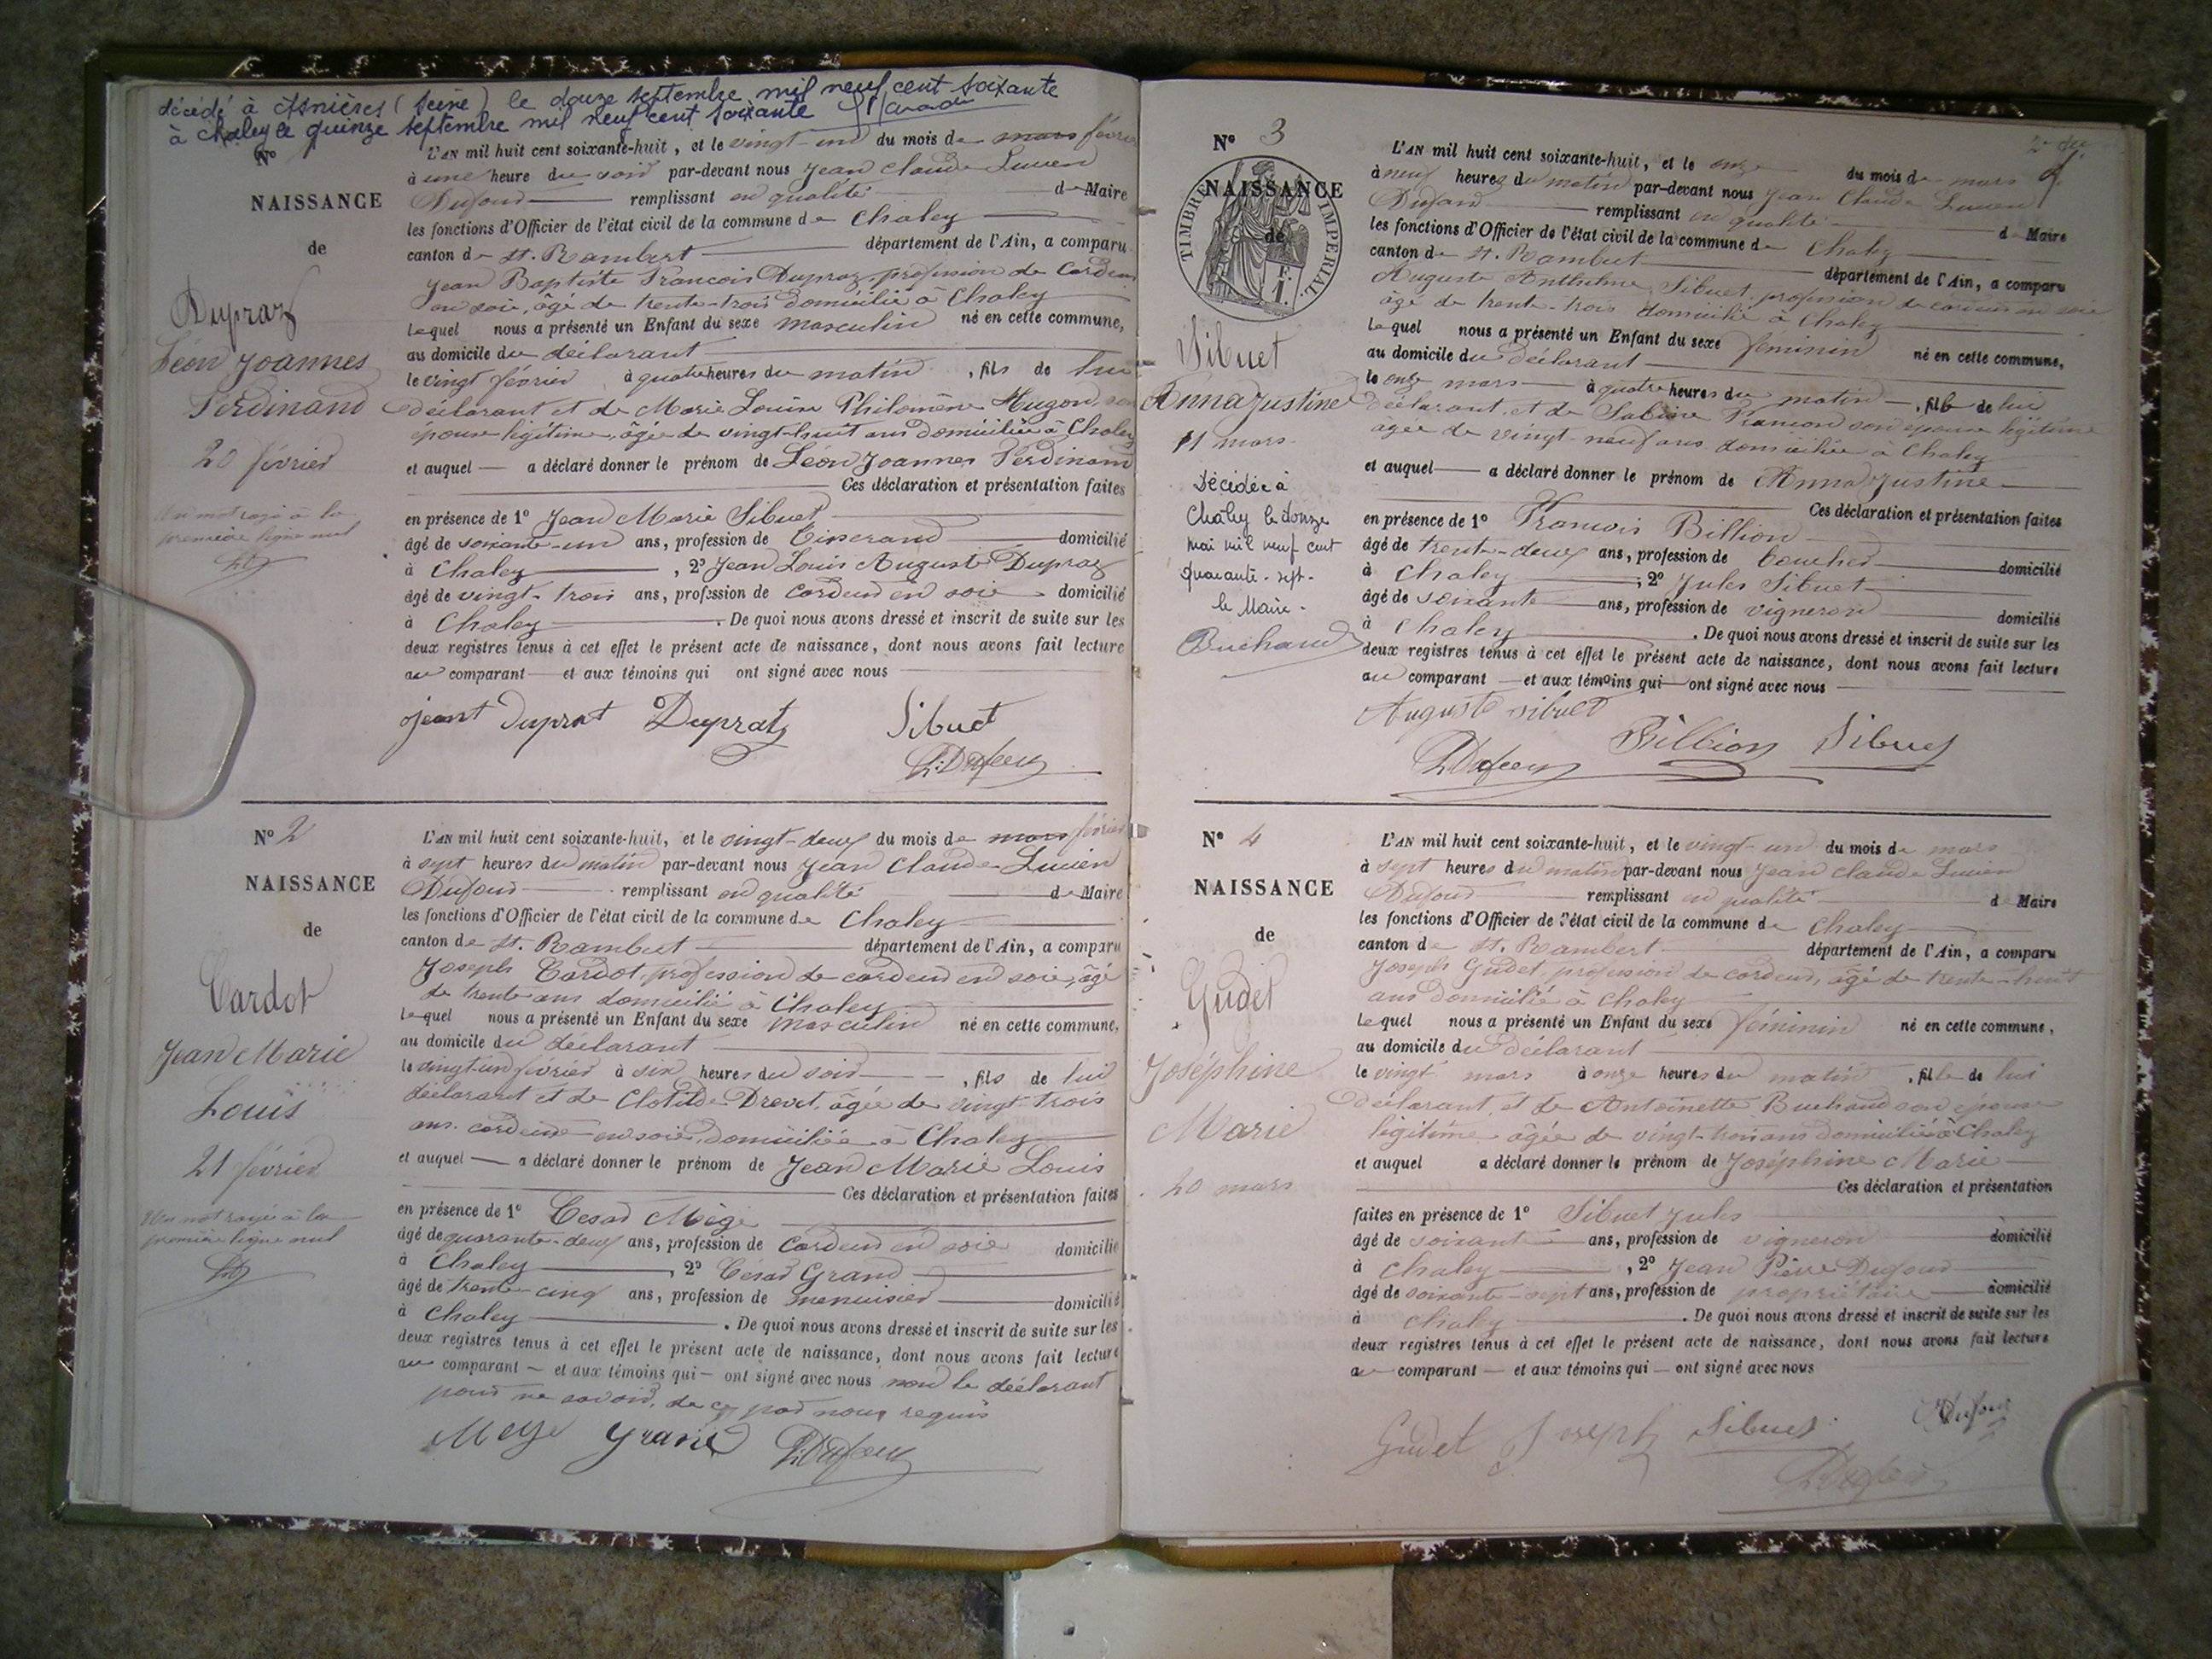 décédé à Asnières (Seine) le douze septembre mil neuf cent soixante
à Chaley le quinze septembre mil neuf cent soixante
No
NAISSANCE
de
Dupraz
Léon Joannes
Ferdinand
20 février
Un mot rayé à la
première ligne nul
L'AN mil huit cent soixante-huit, et le vingt-un du mois de mars février
à une heure du soir par-devant nous Jean Claude Lucien
Dufour remplissant en qualité de Maire
les fonctions d'Officier de l'état civil de la commune de Chaley
canton de St. Rambert département de l'Ain, a comparu
Jean Baptiste Francois Dupraz, profession de Cardeur
en soie, âgé de trente-trois domicilié à Chaley
lequel nous a présenté un Enfant du sexe masculin né en cette commune,
au domicile du déclarant
le vingt février à quatre heures du matin, fils de lui
déclarant et de Marie Louise Philomène Hugon, son
épouse légitime, âgée de vingt-huit ans domiciliée à Chaley
et auquel a déclaré donner le prénom de Leon Joannes Ferdinand
Ces déclaration et présentation faites
en présence de 1o Jean Marie Sibuet
âgé de soixante-un ans, profession de Tisserand domicilié
à Chaley, 2o Jean Louis Auguste Dupraz
âgé de vingt-trois ans, profession de cardeur en soie domicilié
à Chaley. De quoi nous avons dressé et inscrit de suite sur les
deux registres tenus à cet effet le présent acte de naissance, dont nous avons fait lecture
au comparant et aux témoins qui ont signé avec nous
Duprat Dupratz Sibuet
No 2
NAISSANCE
de
Cardot
Jean Marie
Louis
21 février
Un mot rayé à la
première ligne nul
L'AN mil huit cent soixante-huit, et le vingt-deux du mois de mars février
à sept heures du matin par-devant nous Jean Claude Lucien
Dufour remplissant en qualité de Maire
les fonctions d'Officier de l'état civil de la commune de Chaley
canton de St. Rambert département de l'Ain, a comparu
Joseph Cardot, profession de cardeur en soie, âgé
de trente ans domicilié à Chaley
lequel nous a présenté un Enfant du sexe masculin né en cette commune,
au domicile du déclarant
le vingt-un février à six heures du soir, fils de lui
déclarant et de Clotilde Drevet, âgée de vingt-trois
ans. cardeuse en soie, domiciliée à Chaley
et auquel a déclaré donner le prénom de Jean Marie Louis
Ces déclaration et présentation faites
en présence de 1o Cesar Mège
âgé de quarante-deux ans, profession de Cardeur en soie domicilié
à Chaley, 2o César Grand
âgé de trente-cinq ans, profession de menuisier domicilié
à Chaley. De quoi nous avons dressé et inscrit de suite sur les
deux registres tenus à cet effet le présent acte de naissance, dont nous avons fait lecture
au comparant et aux témoins qui ont signé avec nous non le déclarant
pour ne savoir, de ce par nous requis
Mege Grand
No 3
TIMBRE IMPERIAL
NAISSANCE
de
Sibuet
Anna Justine
11 mars
Décédée à
Chaley le douze
mai mil neuf cent
quarante-sept.
le Maire.
Buchand
L'AN mil huit cent soixante-huit, et le onze du mois de mars
à neuf heures du matin par-devant nous Jean Claude Lucien
Dufour remplissant en qualité de Maire
les fonctions d'Officier de l'état civil de la commune de Chaley
canton de St. Rambert département de l'Ain, a comparu
Auguste Anthelme Sibuet, profession de cardeur en soie
âgé de trente-trois domicilié à Chaley
lequel nous a présenté un Enfant du sexe féminin né en cette commune,
au domicile du déclarant
le onze mars à quatre heures du matin, fille de lui
déclarant, et de Sabine Francon son épouse légitime
âgée de vingt-neuf ans domiciliée à Chaley
et auquel a déclaré donner le prénom de Anna Justine
Ces déclaration et présentation faites
en présence de 1o Francois Billion
âgé de trente-deux ans, profession de boucher domicilié
à Chaley, 2o Jules Sibuet
âgé de soixante ans, profession de vigneron domicilié
à Chaley. De quoi nous avons dressé et inscrit de suite sur les
deux registres tenus à cet effet le présent acte de naissance, dont nous avons fait lecture
au comparant et aux témoins qui ont signé avec nous
Auguste Sibuet
Billion Sibuet
No 4
NAISSANCE
de
Gudet
Joséphine
Marie
20 mars
L'AN mil huit cent soixante-huit, et le vingt-un du mois de mars
à sept heures du matin par-devant nous Jean Claude Lucien
Dufour remplissant en qualité de Maire
les fonctions d'Officier de l'état civil de la commune de Chaley
canton de St. Rambert département de l'Ain, a comparu
Joseph Gudet, profession de cardeur, âgé de trente-huit
ans domicilié à Chaley
lequel nous a présenté un Enfant du sexe féminin né en cette commune,
au domicile du déclarant
le vingt mars à onze heures du matin, fille de lui
déclarant, et de Antoinette Buchand son épouse
légitime âgée de vingt-trois ans domiciliée à Chaley
et auquel a déclaré donner le prénom de Joséphine Marie
Ces déclaration et présentation
faites en présence de 1o Sibuet Jules
âgé de soixante ans, profession de vigneron domicilié
à Chaley, 2o Jean Pierre Dufour
âgé de soixante-sept ans, profession de propriétaire domicilié
à Chaley. De quoi nous avons dressé et inscrit de suite sur les
deux registres tenus à cet effet le présent acte de naissance, dont nous avons fait lecture
au comparant et aux témoins qui ont signé avec nous
Gudet Joseph Sibuet Dufour